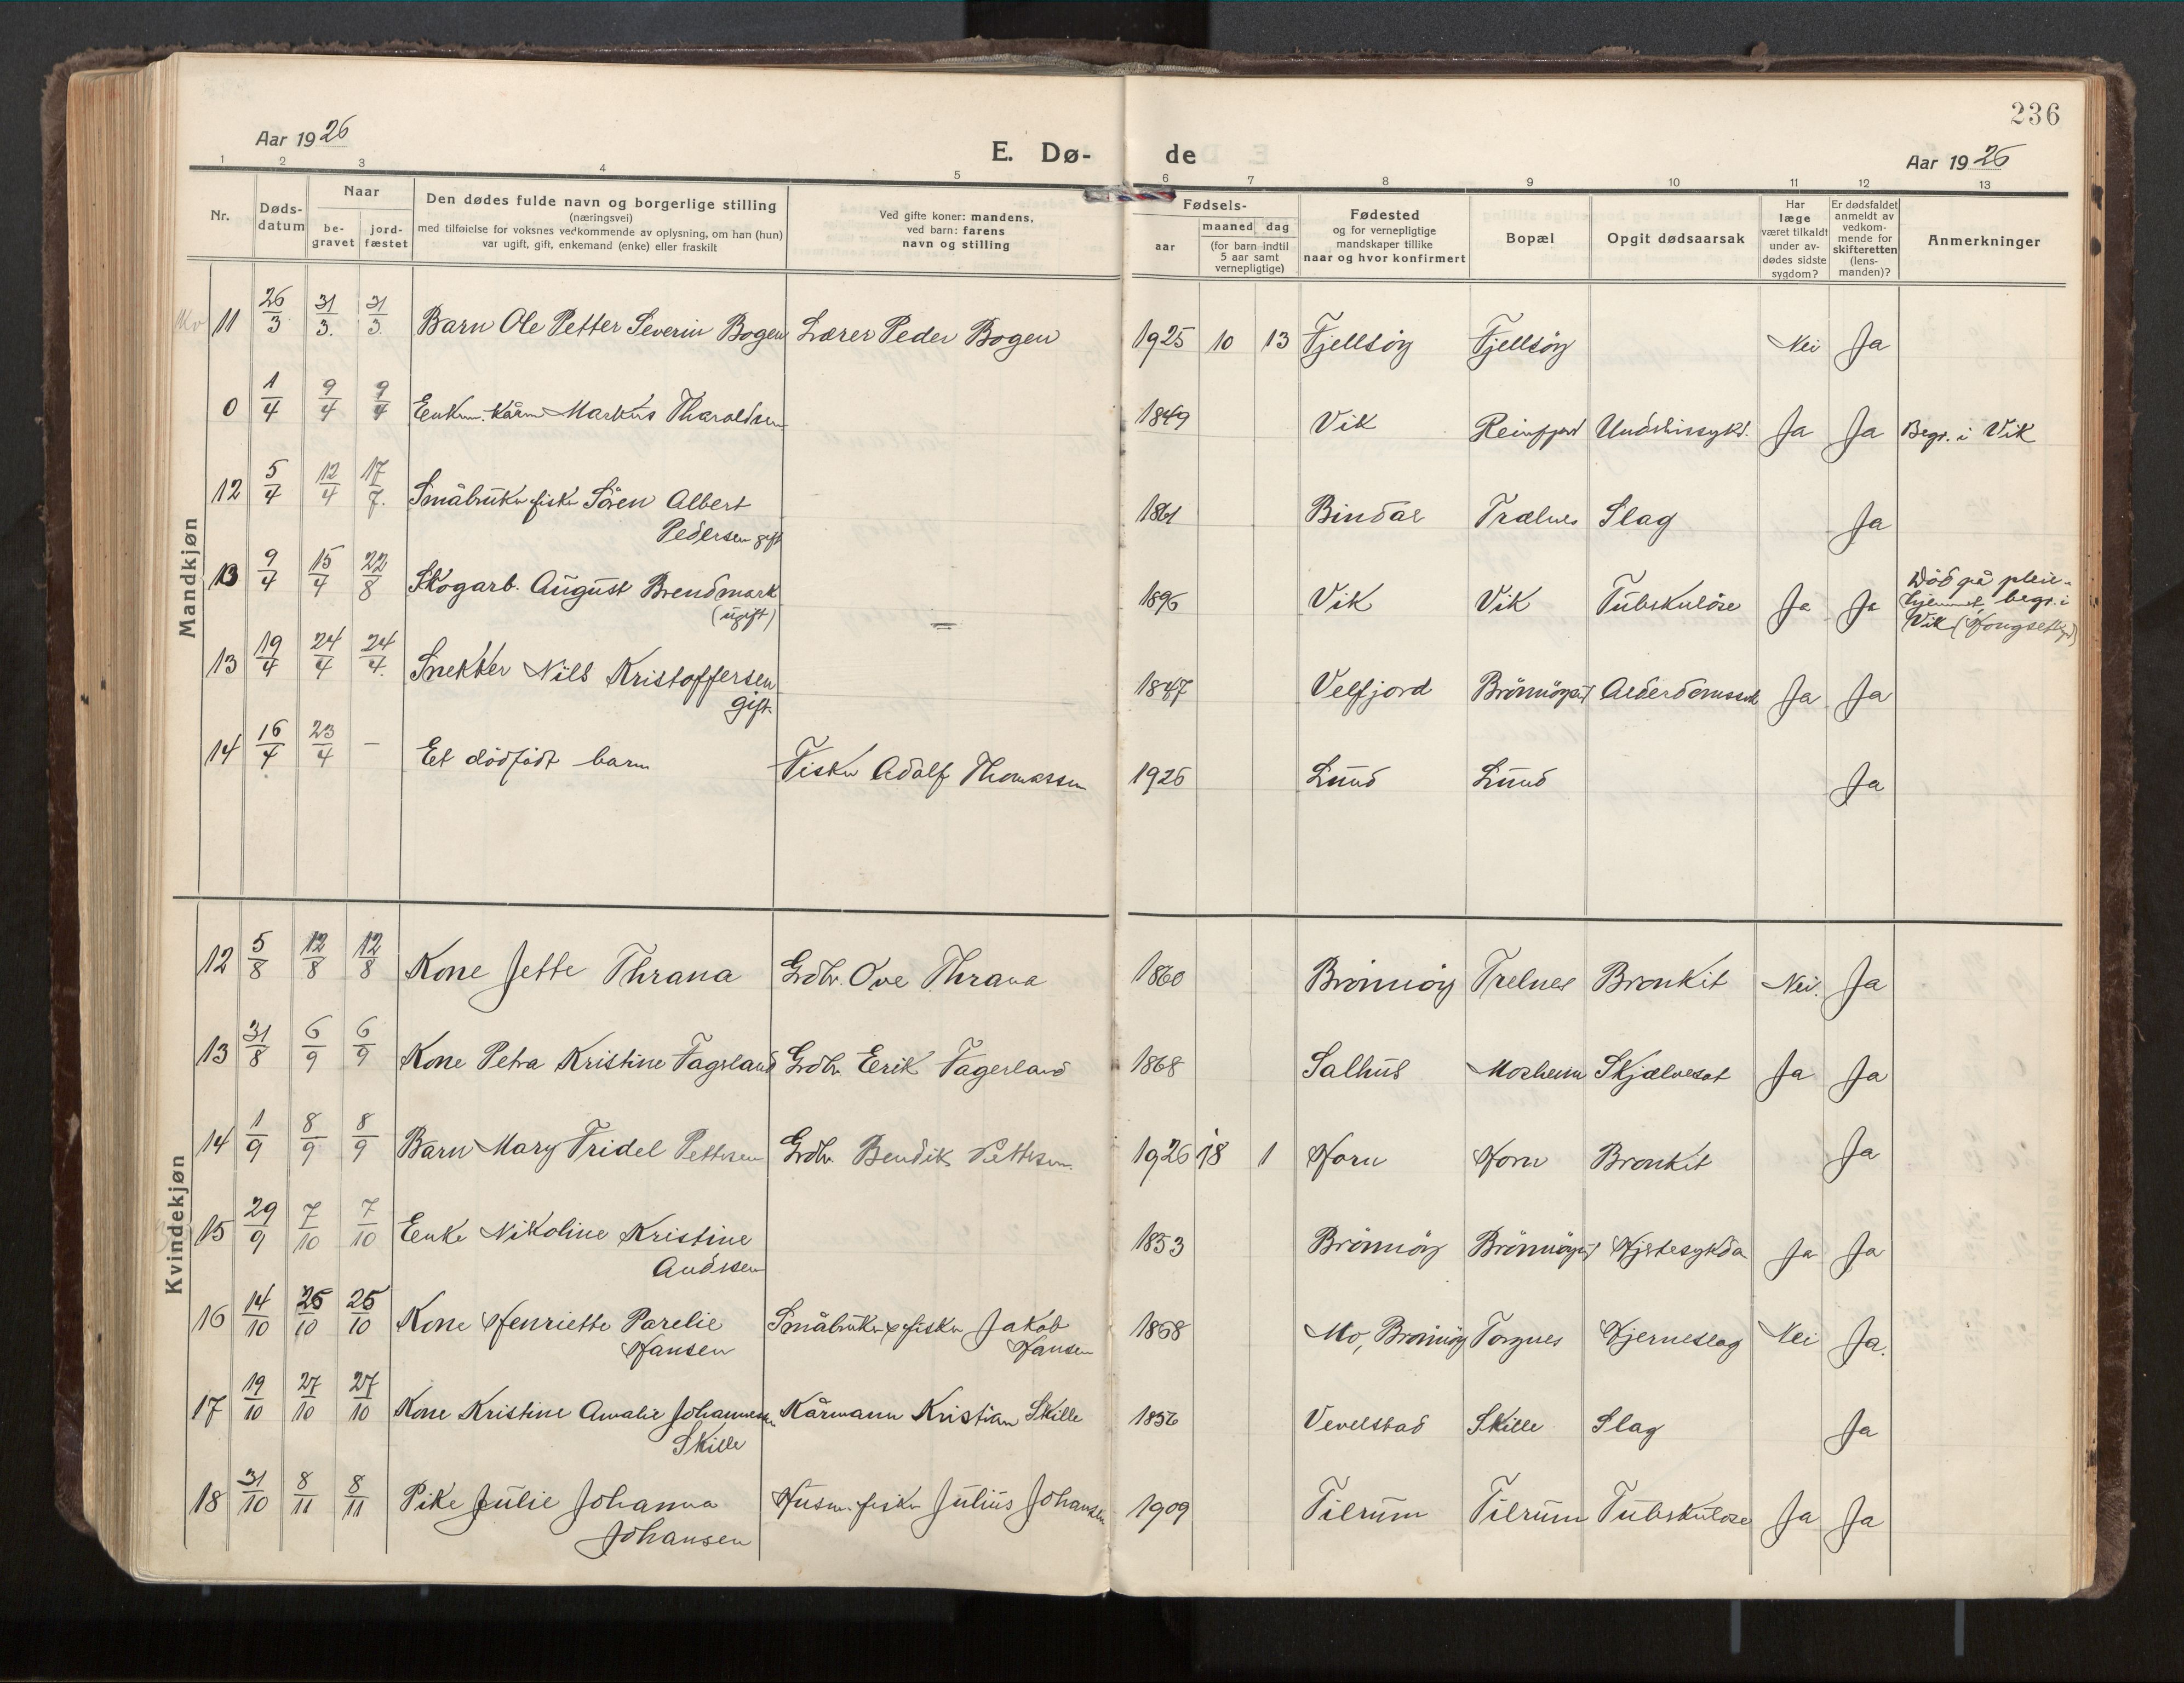 236
Aar 1926
E. Dø-
de
Aar 1926
1 2 3 4 5 6 7 8 9 10 11 12 13
Nr.
Døds-
datum
Naar
be-
gravet
jord-
fæstet
Den dødes fulde navn og borgerlige stilling
(næringsvei)
med tilføielse for voksnes vedkommende av oplysning, om han (hun)
var ugift, gift, enkemand (enke) eller fraskilt
Ved gifte koner: mandens,
ved barn: farens
navn og stilling
Fødsels-
aar
maaned dag
(for barn indtil
5 aar samt
vernepligtige)
Fødested
og for vernepligtige
mandskaper tillike
naar og hvor konfirmert
Bopæl
Opgit dødsaarsak
Har
læge
været tilkaldt
under av-
dødes sidste
sygdom?
Er dødsfaldet
anmeldt av
vedkom-
mende for
skifteretten
(lens-
manden)?
Anmerkninger
Mandkjøn
11 26/3 31/3. 31/3. Barn Ole Petter Severin Bogen Lærer Peder Bogen 1925 10 13 Tjellsöy Tjellsöy Nei Ja
0 1/4 9/4 9/4 Enkm. Kårm Markus Tharaldsen 1849 Vik Reinfjord Ja Ja Begr. i Vik
12 5/4 12/4 17/7. Småbruker fisker Sören Albert
Pedersen gift 1861 Bindal Trælnes Slag Ja
13 9/4 15/4 22/8 Skogarb. August Brendmark
(ugift) 1896 Vik Vik Tuberkulöse Ja Ja Död på pleie-
hjemmet, begr. i
Vik
13 19/4 24/4 24/4. Snekker Nils Kristoffersen
gift. 1847 Velfjord Brönnöysd Alderdomssvk Ja Ja
14 16/4 23/4 — Et dödfödt barn Fisker Adolf Thomassen 1926 Lund Lund Ja
Kvindekjøn
12 5/8 12/8 12/8 Kone Jette Thrana Grdbr. Ove Thrana 1860 Brönnöy Trelnes Bronkit Nei. Ja
13 31/8 6/9 6/9 Kone Petra Kristine Fagerland Grdbr. Eerik Fagerland 1868 Salhus Mosheim Skjælvesot Ja Ja
14 1/9 8/9 8/9 Barn Mary Fridel Pettersen Grdbr. Bendik Pettersen. 1926 18 1 Horn Horn Bronkit Ja
15 29/9 7/10 7/10 Enke Nikoline Kristine
Andssen 1853 Brönnöy Brönnöysd Hjertesykda Ja Ja
16 14/10 25/10 25/10 Kone Henriette Parelie
Hansen Småbruker & fisker Jakob
Hansen 1868 Mo, Brönnöy Torgnes Hjerneslag Nei Ja.
17 19/10 27/10 27/10 Kone Kristine Amalie Johannessen
Skille Kårmann Kristian Skille 1856 Vevelstad Skille Slag Ja
18 31/10 8/11 8/11 Pike Julie Johanna
Johansen Husm. fisker Julius Johansen 1909 Tilrum Tilrum Tuberkulose Ja Ja